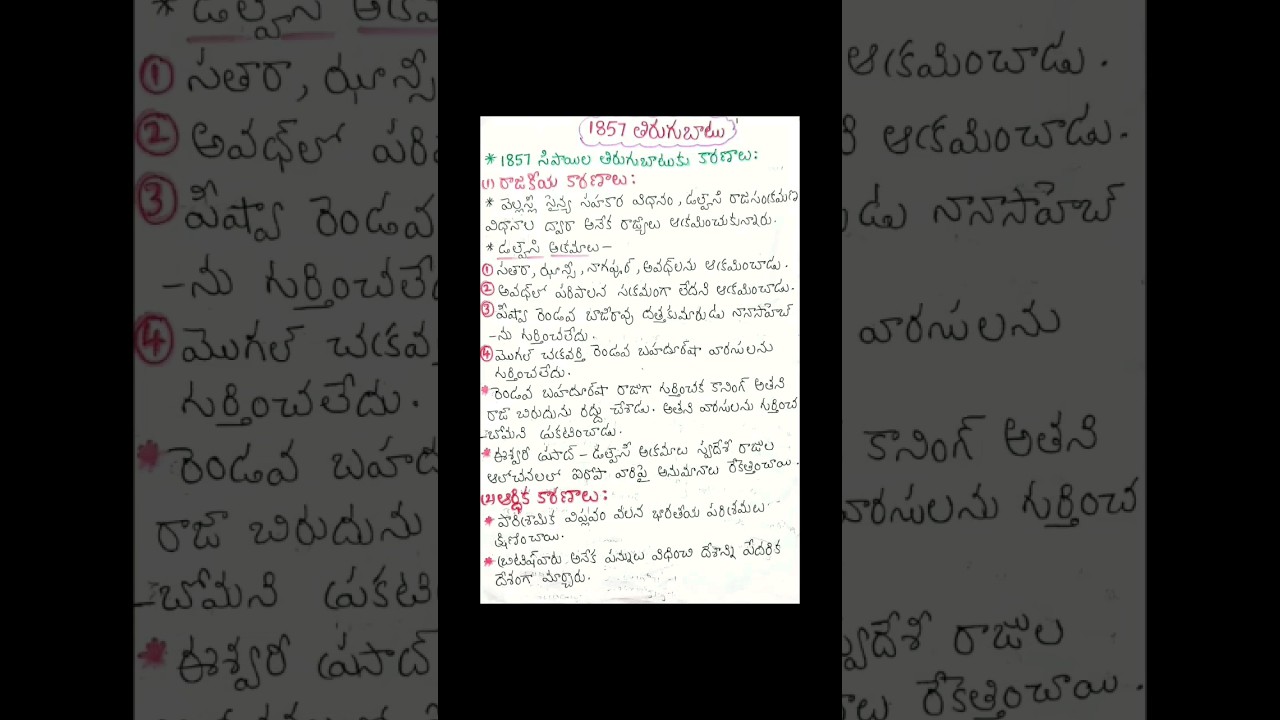 1857 తిరుగుబాటు
* 1857 సిపాయిల తిరుగుబాటుకు కారణాలు:
(1) రాజకీయ కారణాలు:
* వెల్లస్లీ సైన్య సహకార విధానం, డల్హౌసి రాజ్యసంక్రమణ
విధానాల ద్వారా అనేక రాజ్యాలు ఆక్రమించుకున్నారు.
* డల్హౌసి అక్రమాలు -
① సతారా, ఝాన్సీ, నాగపూర్, అవధ్‌లను ఆక్రమించాడు.
② అవధ్‌లో పరిపాలన సక్రమంగా లేదని ఆక్రమించాడు.
③ పీష్వా రెండవ బాజీరావు దత్తకుమారుడు నానాసాహెబ్
-ను గుర్తించలేదు.
④ మొగల్ చక్రవర్తి రెండవ బహదూర్‌షా వారసులను
గుర్తించలేదు.
* రెండవ బహదూర్‌షా రాజుగా గుర్తించక కానింగ్ అతని
రాజ్ బిరుదును రద్దు చేశాడు. అతని వారసులను గుర్తించ
-బోమని ప్రకటించాడు.
* ఈశ్వరీ ప్రసాద్ - డల్హౌసి అక్రమాలు స్వదేశీ రాజుల
ఆలోచనలలో ఐరోపా వారిపై అనుమానాలు రేకెత్తించాయి.
(2) ఆర్ధిక కారణాలు:
* పారిశ్రామిక విప్లవం వలన భారతీయ పరిశ్రమలు
క్షీణించాయి.
* బ్రిటిష్‌వారు అనేక పన్నులు విధించి దేశాన్ని పేదరిక
దేశంగా మార్చారు.